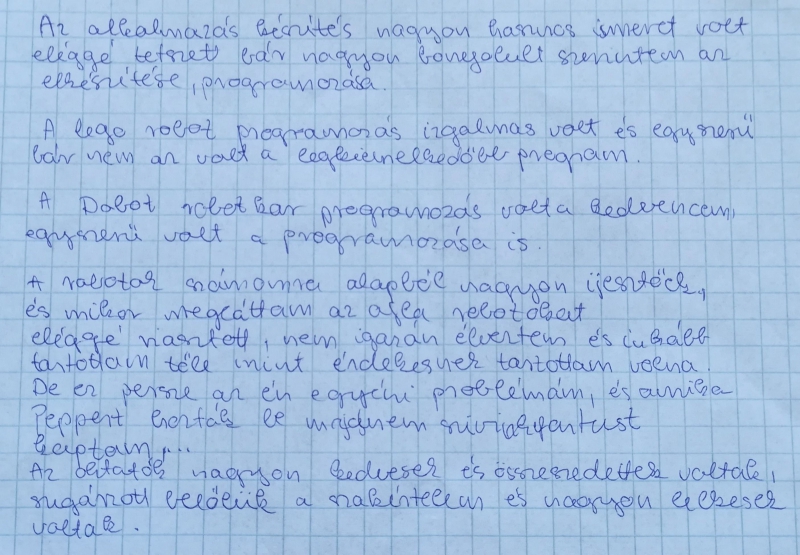 Az alkalmazás készítés nagyon hasznos ismeret volt
eléggé tetszett bár nagyon bonyolult szerintem az
elkészítése, programozása.
A lego robot programozás izgalmas volt és egyszerű
bár nem az volt a legkiemelkedőbb program.
A Dobot robotkar programozás volt a kedvencem,
egyszerű volt a programozása is.
A robotok számomra alapból nagyon ijesztőek,
és mikor megláttam az afla robotokat
eléggé riasztott, nem igazán élveztem és inkább
tartottam tőle mint érdekesnek tartottam volna.
De ez persze az én egyéni problémám, és amikor
Peppert hozták le majdnem szívinfarktust
kaptam...
Az oktatók nagyon kedvesek és összeszedettek voltak,
sugárzott belőlük a szakértelem és nagyon lelkesek
voltak.